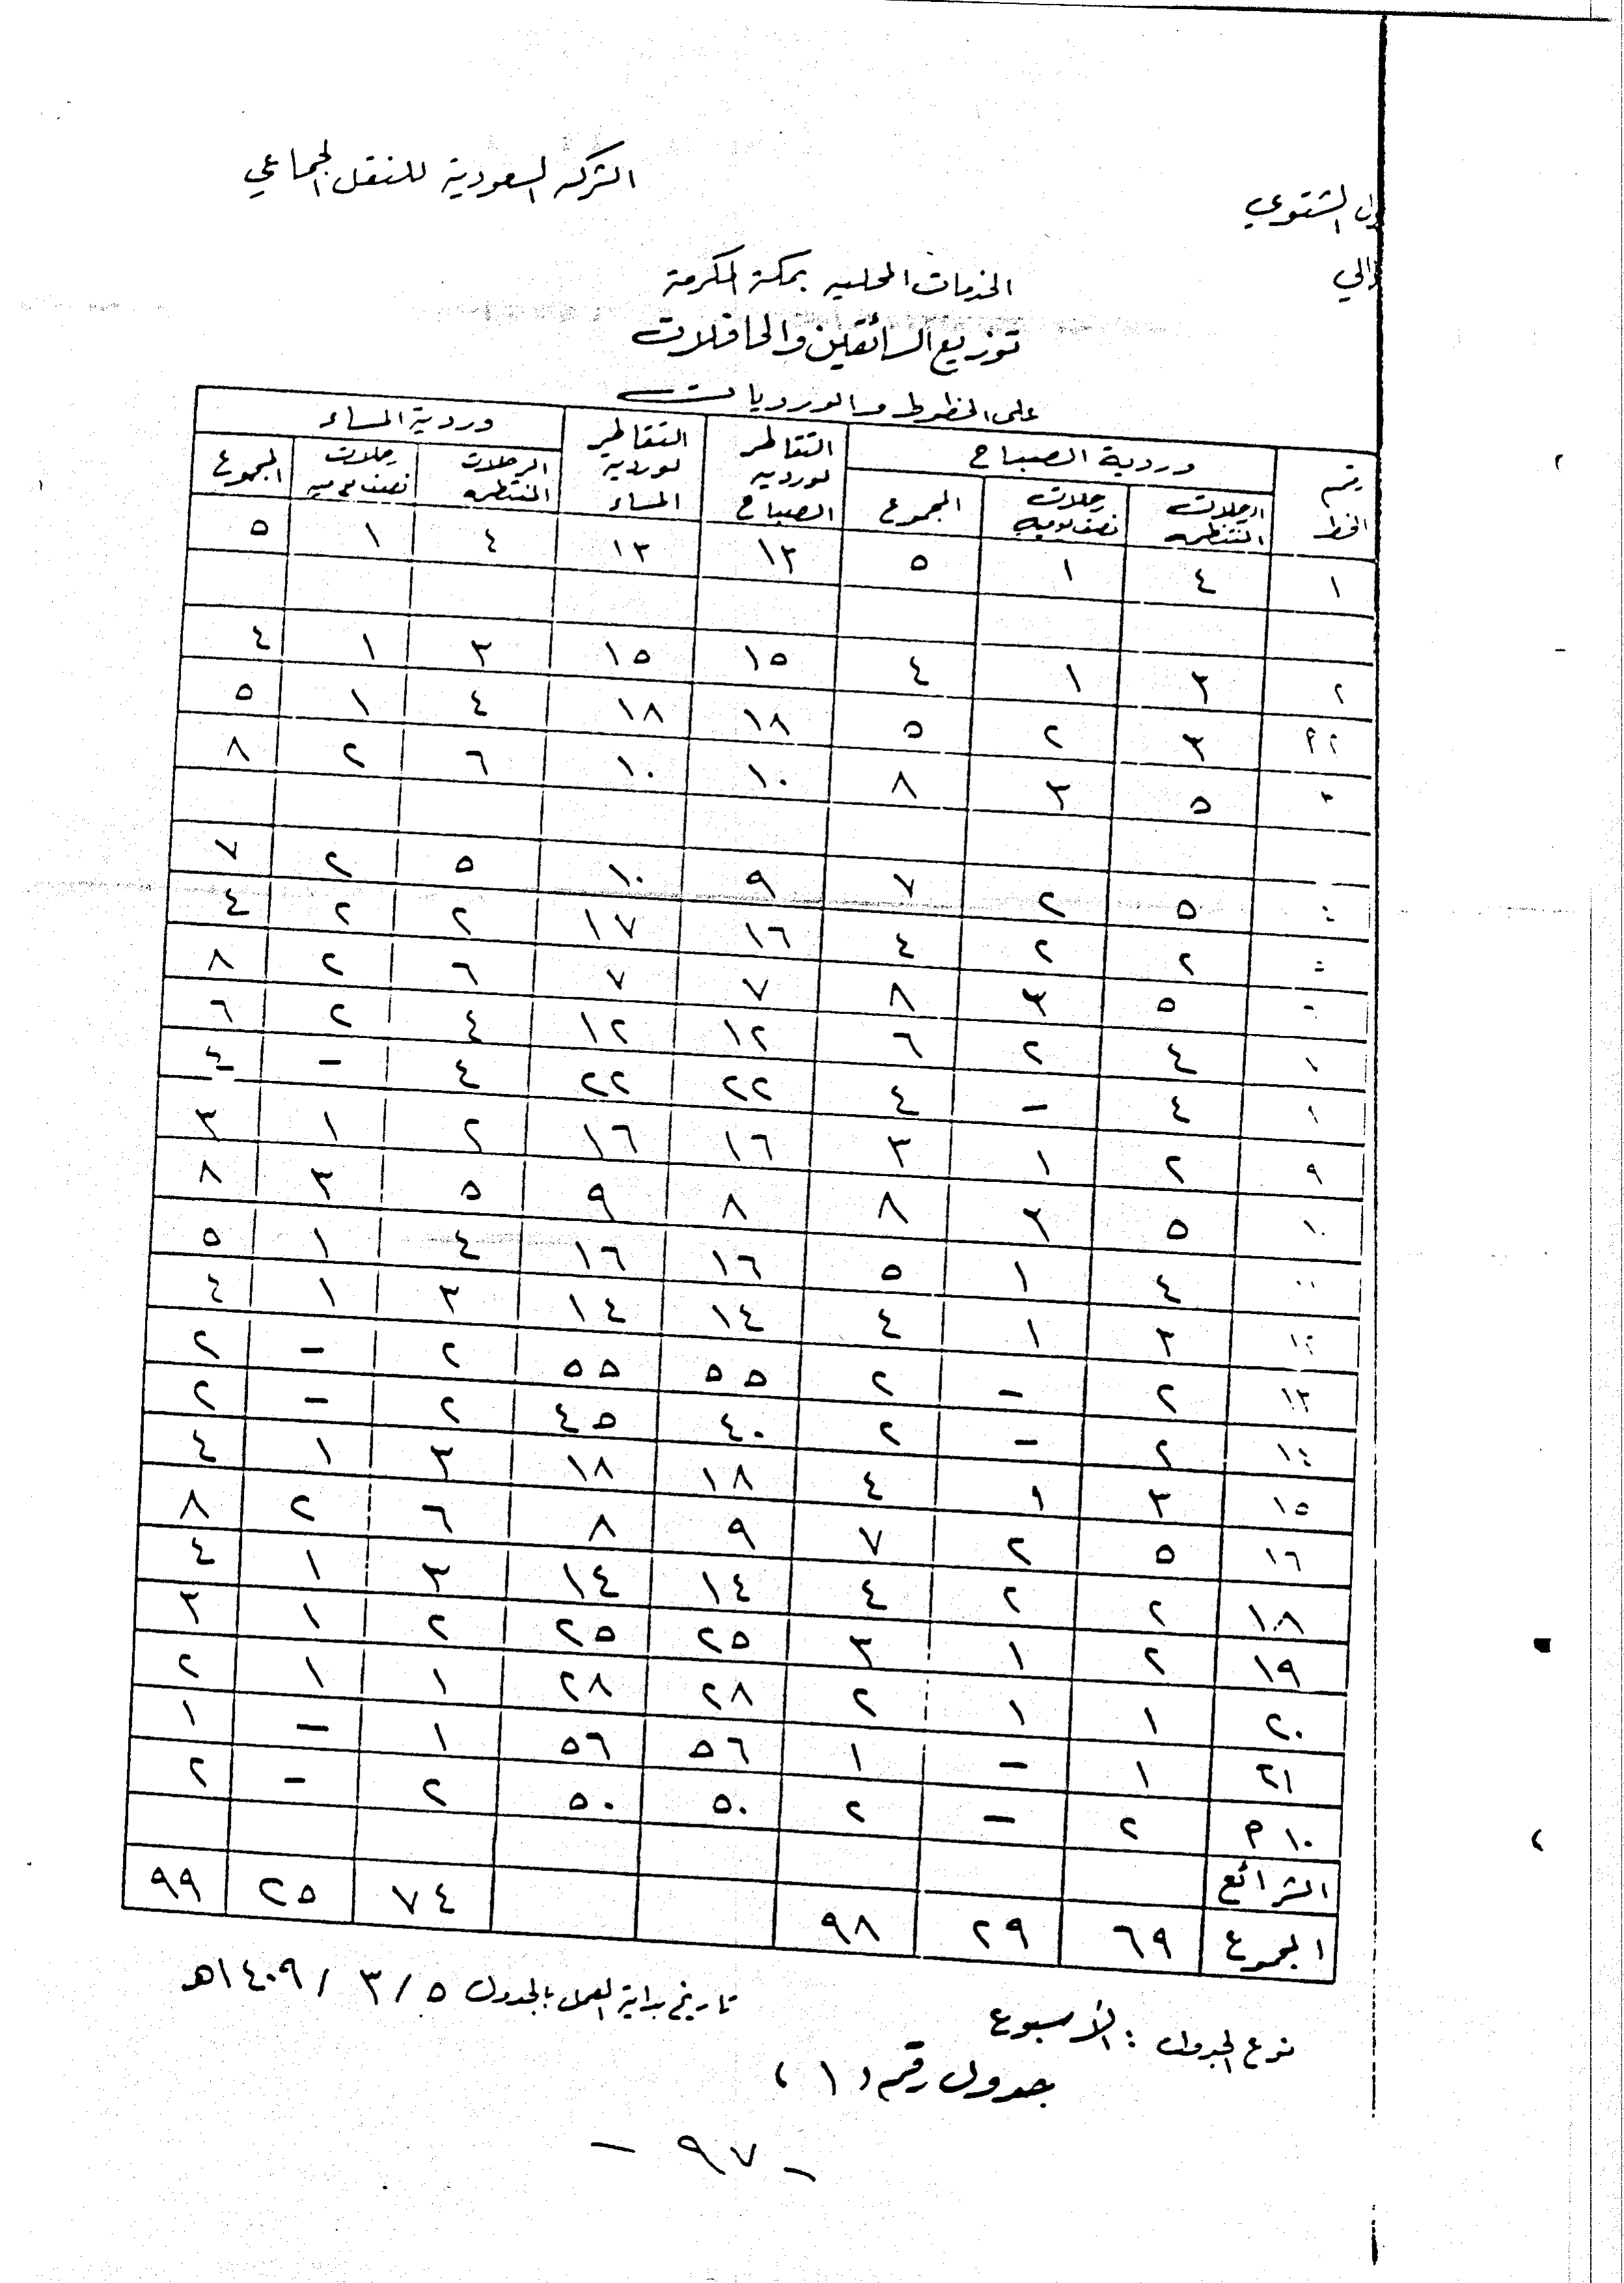 الشركة السعودية للنقل الجماعي
الشتوي
الخدمات المحلية بمكة المكرمة
توزيع السائقين والحافلات
على الخطوط والورديات
رقم الخط | وردية الصباح | التقاطر لوردية الصباح | التقاطر لوردية المساء | وردية المساء
الرحلات المنتظمة | رحلات نصف يومية | المجموع | الرحلات المنتظمة | رحلات نصف يومية | المجموع
١ | ٤ | ١ | ٥ | ١٣ | ١٣ | ٤ | ١ | ٥
٢ | ٣ | ١ | ٤ | ١٥ | ١٥ | ٣ | ١ | ٤
٢م | ٣ | ٢ | ٥ | ١٨ | ١٨ | ٤ | ١ | ٥
٣ | ٥ | ٣ | ٨ | ١٠ | ١٠ | ٦ | ٢ | ٨
٥ | ٢ | ٧ | ٩ | ١٠ | ٥ | ٢ | ٧
٢ | ٢ | ٤ | ١٦ | ١٧ | ٢ | ٢ | ٤
٥ | ٣ | ٨ | ٧ | ٧ | ٦ | ٢ | ٨
٤ | ٢ | ٦ | ١٢ | ١٢ | ٤ | ٢ | ٦
٤ | - | ٤ | ٢٢ | ٢٢ | ٤ | - | ٤
٩ | ٢ | ١ | ٣ | ١٦ | ١٦ | ٢ | ١ | ٣
١٠ | ٥ | ٣ | ٨ | ٨ | ٩ | ٥ | ٣ | ٨
٤ | ١ | ٥ | ١٦ | ١٦ | ٤ | ١ | ٥
٣ | ١ | ٤ | ١٤ | ١٤ | ٣ | ١ | ٤
١٣ | ٢ | - | ٢ | ٥٥ | ٥٥ | ٢ | - | ٢
١٤ | ٢ | - | ٢ | ٤٠ | ٤٥ | ٢ | - | ٢
١٥ | ٣ | ١ | ٤ | ١٨ | ١٨ | ٣ | ١ | ٤
١٦ | ٥ | ٢ | ٧ | ٩ | ٨ | ٦ | ٢ | ٨
١٨ | ٢ | ٢ | ٤ | ١٤ | ١٤ | ٣ | ١ | ٤
١٩ | ٢ | ١ | ٣ | ٢٥ | ٢٥ | ٢ | ١ | ٣
٢٠ | ١ | ١ | ٢ | ٢٨ | ٢٨ | ١ | ١ | ٢
٢١ | ١ | - | ١ | ٥٦ | ٥٦ | ١ | - | ١
١٠ م | ٢ | - | ٢ | ٥٠ | ٥٠ | ٢ | - | ٢
الشرائع
المجموع | ٦٩ | ٢٩ | ٩٨ | ٧٤ | ٢٥ | ٩٩
نوع الجدول : الأسبوع
تاريخ بداية العمل بالجدول ٥ / ٣ / ١٤٠٩هـ
جدول رقم (١)
- ٩٧ -